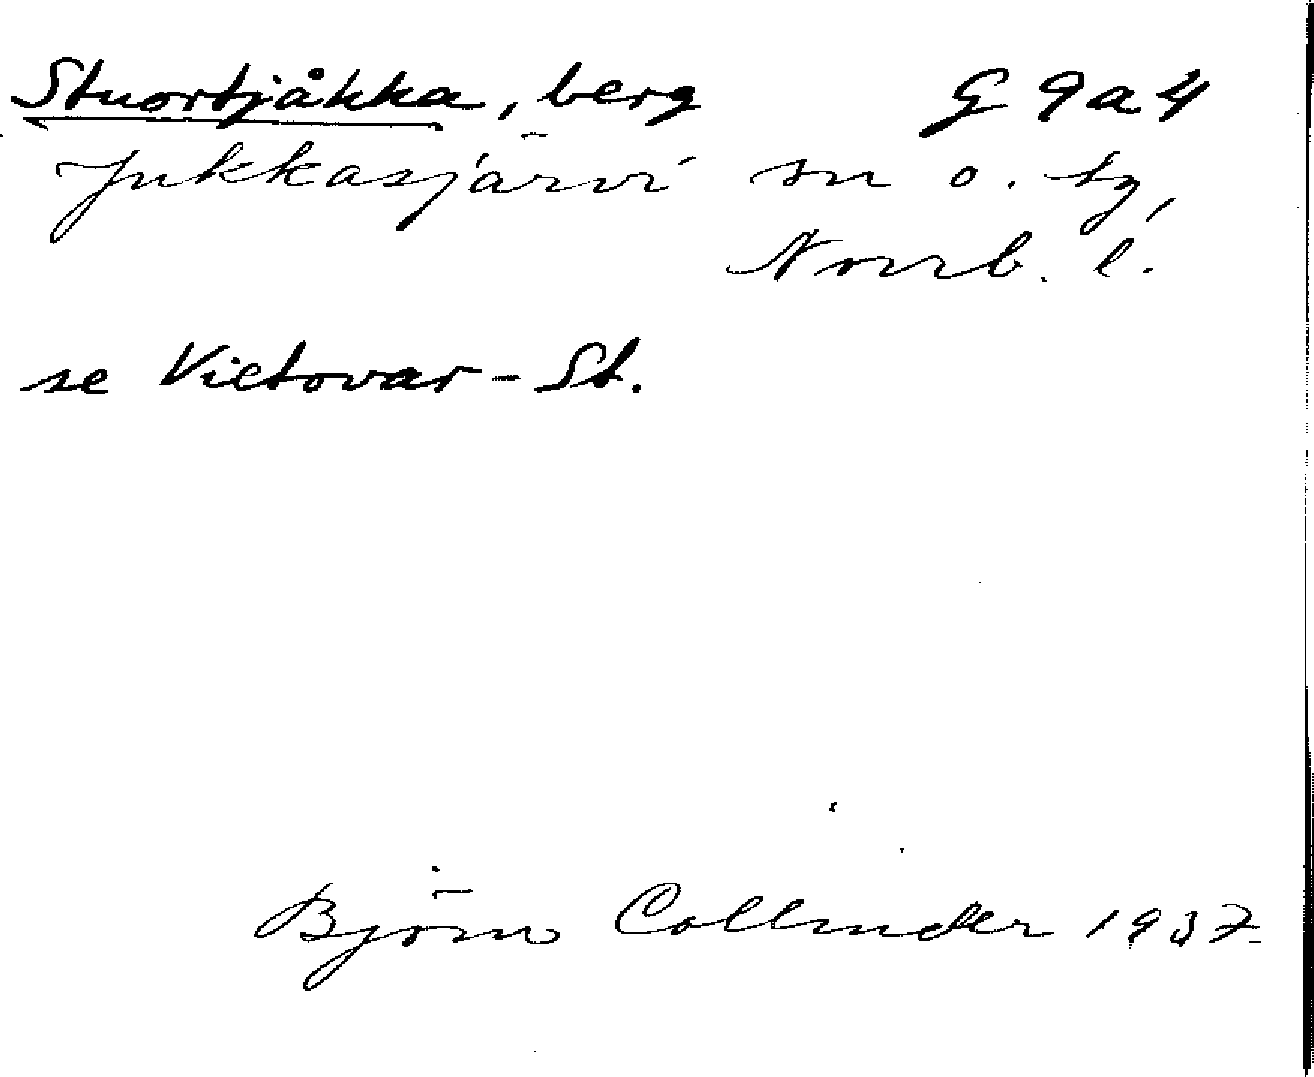 Stuortjåkka, berg G 9 a 4
Jukkasjärvi sn o. tg,
Norrb. l.
se Vietovar-St.
Björn Collinder 1937